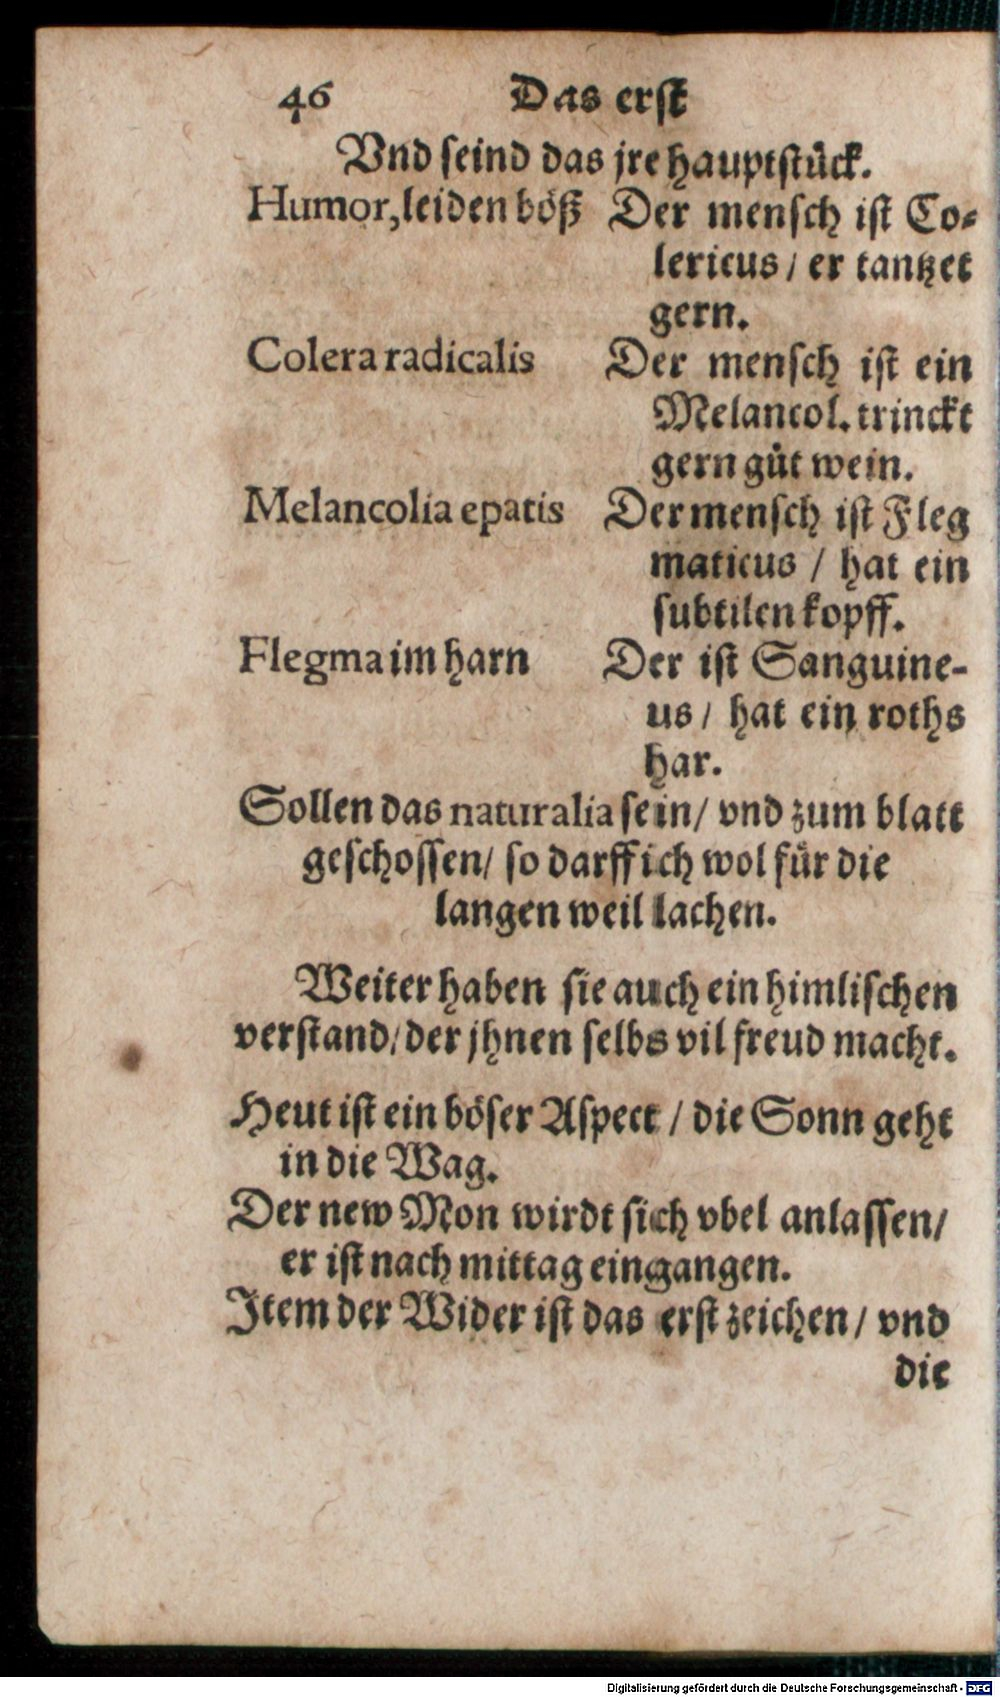 46 Das erst
Vnd seind das jre hauptstück.
Humor, leiden böß Der mensch ist Co-
lericus / er tantzet
gern.
Colera radicalis Der mensch ist ein
Melancol. trinckt
gern gůt wein.
Melancolia epatis Der mensch ist Fleg
maticus / hat ein
subtilen kopff.
Flegma im harn Der ist Sanguine-
us / hat ein roths
har.
Sollen das naturalia sein / vnd zum blatt
geschossen / so darff ich wol für die
langen weil lachen.
Weiter haben sie auch ein himlischen
verstand / der jhnen selbs vil freud macht.
Heut ist ein böser Aspect / die Sonn geht
in die Wag.
Der new Mon wirdt sich vbel anlassen /
er ist nach mittag eingangen.
Item der Wider ist das erst zeichen / vnd
die
Digitalisierung gefördert durch die Deutsche Forschungsgemeinschaft - DFG